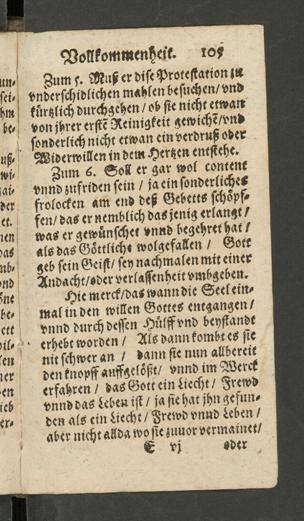 Vollkommenheit. 105
Zum 5. Muß er dise Protestation zu
vnderschidlichen mahlen besuchen / vnd
kürtzlich durchgehen / ob sie nicht etwan
von jhrer erstẽ Reinigkeit gewichẽ / vnd
sonderlich nicht etwan ein verdruß oder
Widerwillen in dem Hertzen entstehe.
Zum 6. Soll er gar wol content
vnnd zufriden sein / ja ein sonderliches
frolocken am end deß Gebetts schöpf-
fen / das er nemblich das jenig erlangt /
was er gewünschet vnnd begehret hat /
als das Göttliche wolgefallen / Gott
geb sein Geist / sey nachmalen mit einer
Andacht / oder verlassenheit vmbgeben.
Hie merck / das wann die Seel ein-
mal in den willen Gottes entgangen /
vnnd durch dessen Hülff vnd beystande
erhebt worden / Als dann kombt es sie
nit schwer an / dann sie nun allbereit
den knopff auffgelößt / vnnd im Werck
erfahren / das Gott ein Liecht / Frewd
vnnd das Leben ist / ja sie hat jhn gefun-
den als ein Liecht / Frewd vnnd Leben /
aber nicht allda wo sie zuuor vermainet /
E vj oder